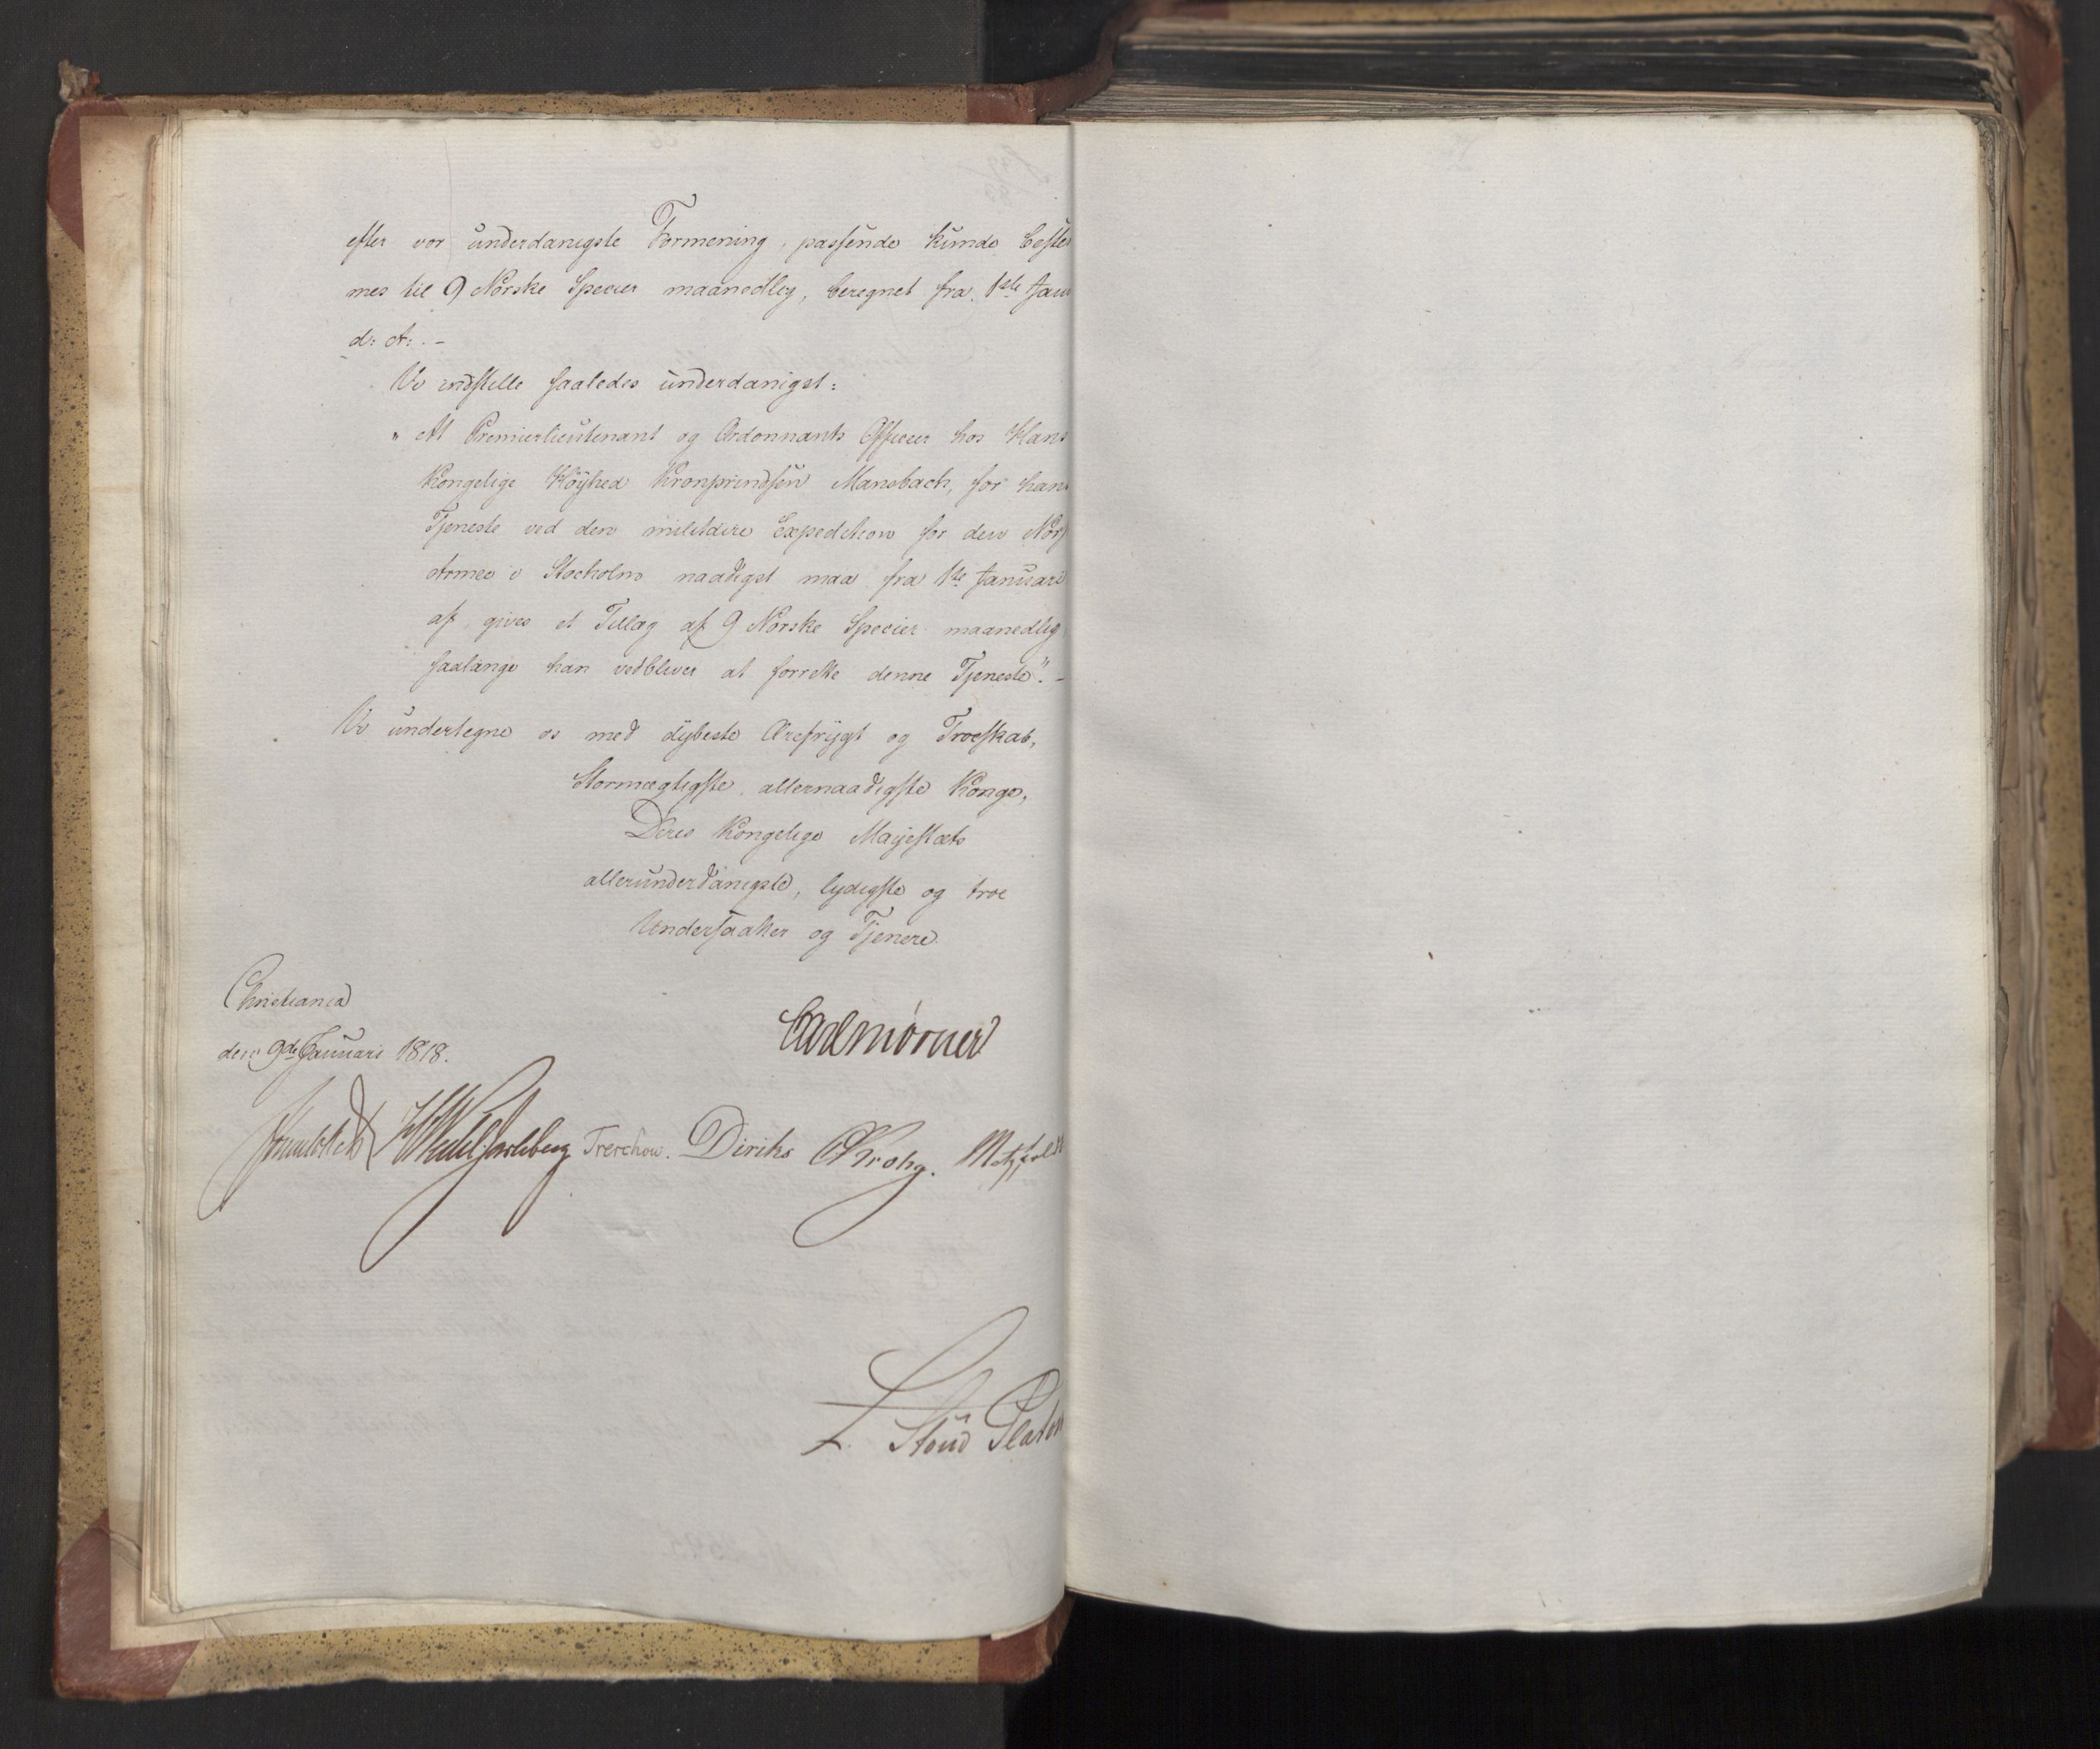 efter vor underdanigste Formening, passende kunde bestem
mes til 9 Norske Specier maanedlig, beregnet fra 1ste Janu
d: A: . -
Vi indstille saaledes underdanigst:
" At Premierlieutenant og Ordonnants Officeer hos Hans
Kongelige Höyhed Kronprindsen Mansbach, for hans
Tjeneste ved den militaire Expedition for den Norsk
Armee i Stockholm naadigst maa fra 1ste Januari
af, gives et Tillæg af 9 Norske Specier maanedlig
saalænge han vedbliver at forrette denne Tjeneste". -
Vi undertegne os med dybeste Ærefrygt og Troeskab,
Stormægtigste, allernaadigste Konge,
Deres Kongelige Majestæts
allerunderdanigste, lydigste og troe
Undersaatter og Tjenere.
Christiania
den 9de Januari 1818.
Carl Mörner
Sommerfeldt HWedel Jarlsberg Treschow. Diriks CKrohg. Motzfeldt
L. Stoud Platou